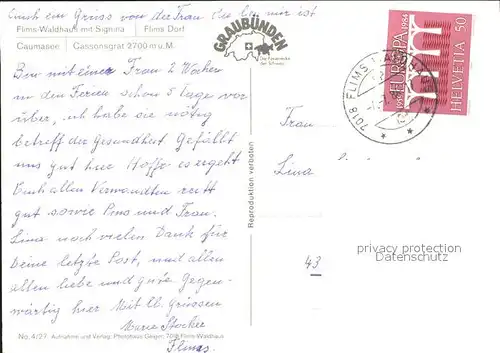 Auch ein Gruss von der Frau die bei mir ist
Flims-Waldhaus mit Signina Flims Dorf
Caumasee Cassonsgrat 2700 m u.M.
GRAUBÜNDEN
Die Ferienecke
der Schweiz
Bin mit einer Frau 2 Wochen
in den Ferien schon 5 Tage vor
über, ich habe sie nötig
betreff der Gesundheit Gefällt
uns gut hier Hoffe es ergeht
Euch allen Verwandten recht
gut sowie Pins und Frau.
Lina noch vielen Dank für
deine letzte Post, und allen
alles liebe und gute Gegen-
wärtig hier Mit lb. grüssen
Marie Stocker
Flims.
No. 4/27 Aufnahme und Verlag: Photohaus Geiger, 7018 Flims-Waldhaus
Reproduktion verboten
EUROPA
1959 1984
HELVETIA 50
7018 FLIMS WALDHAUS
Frau
Lina
43
privacy protection
Datenschutz